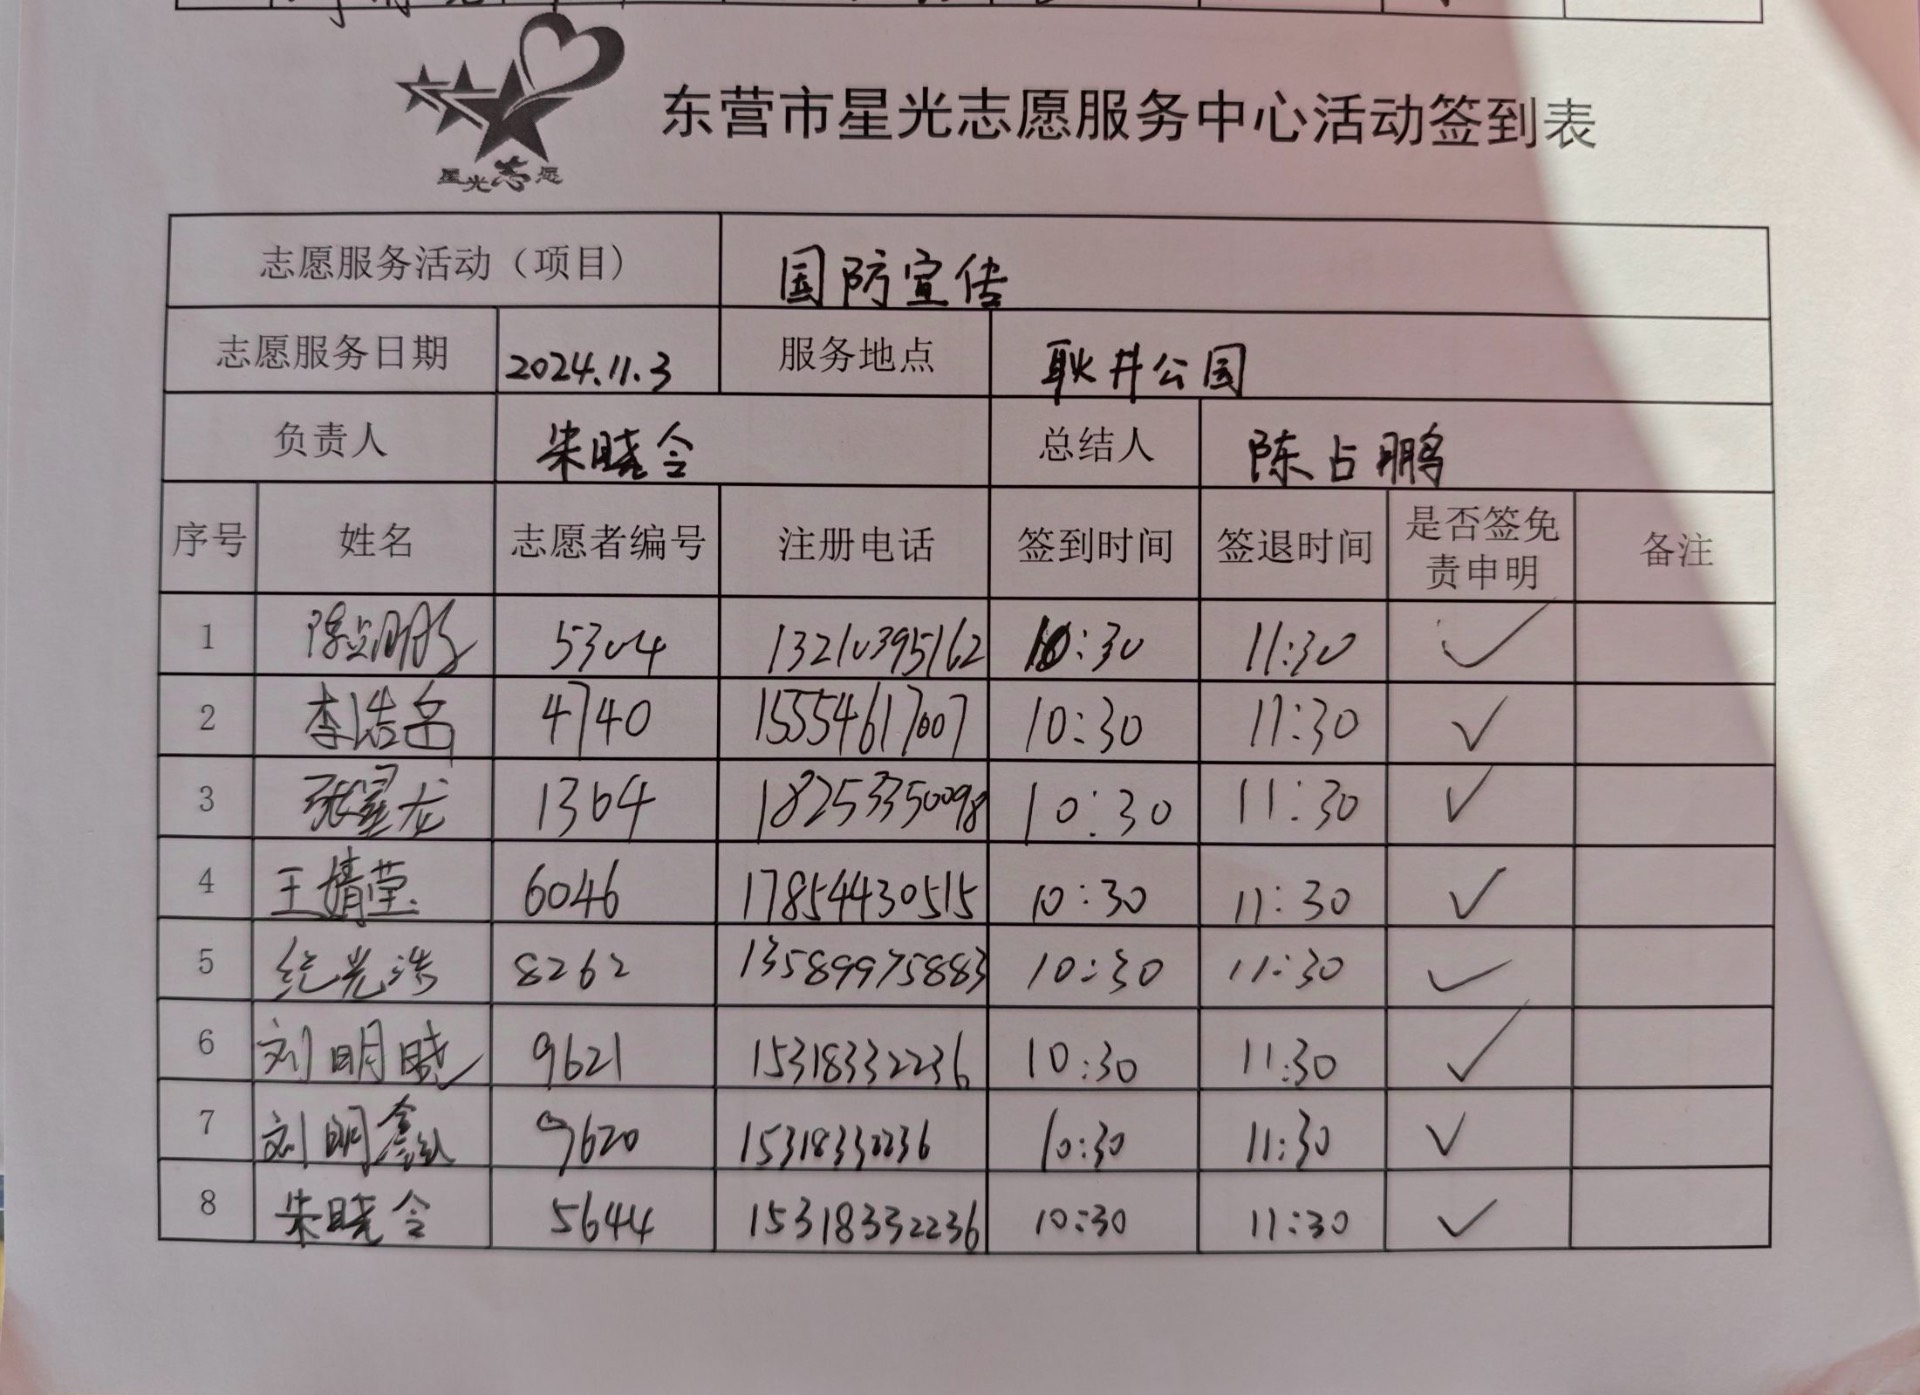 星光志愿
东营市星光志愿服务中心活动签到表
志愿服务活动（项目） 国防宣传
志愿服务日期 2024.11.3 服务地点 耿井公园
负责人 朱晓令 总结人 陈占鹏
序号 姓名 志愿者编号 注册电话 签到时间 签退时间 是否签免责申明 备注
1 陈占鹏 5304 13210395162 10:30 11:30 ✓
2 李浩岳 4740 15554617007 10:30 11:30 ✓
3 张星龙 1364 18253350098 10:30 11:30 ✓
4 王婧莹 6046 17854430515 10:30 11:30 ✓
5 纪光浩 8262 13589975883 10:30 11:30 ✓
6 刘明晓 9621 15318332236 10:30 11:30 ✓
7 刘明鑫 9620 15318330236 10:30 11:30 ✓
8 朱晓令 5644 15318332236 10:30 11:30 ✓